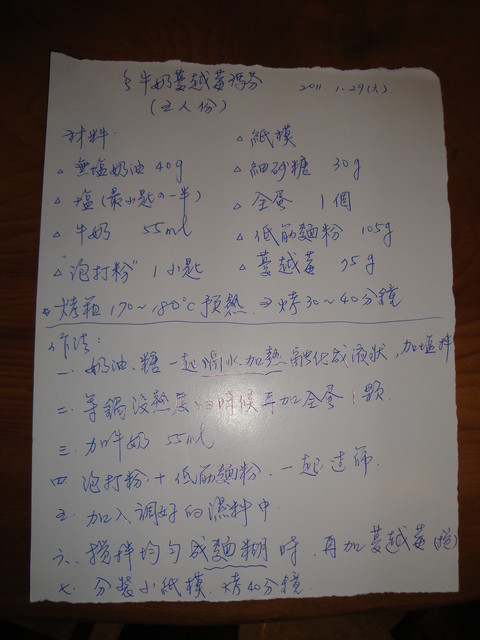 §牛奶蔓越莓瑪芬 2011.1.29(六)
(五人份)
材料 △紙模
△無塩奶油 40g △細砂糖 30g
△塩(最小匙の一半) △全蛋 1個
△牛奶 55ml △低筋麵粉 105g
△"泡打粉" 1小匙 △蔓越莓 35g
*烤箱 170~180℃預熱 → 烤30~40分鐘
作法:
一、奶油、糖一起隔水加熱融化成液狀,加塩拌
二、等鍋沒熱 時候再加全蛋1顆
三、加牛奶 55ml
四、泡打粉+低筋麵粉,一起过篩.
五、加入調好的濕料中
六、攪拌均勻成麵糊時,再加蔓越莓
七、分裝小紙模,烤40分鐘